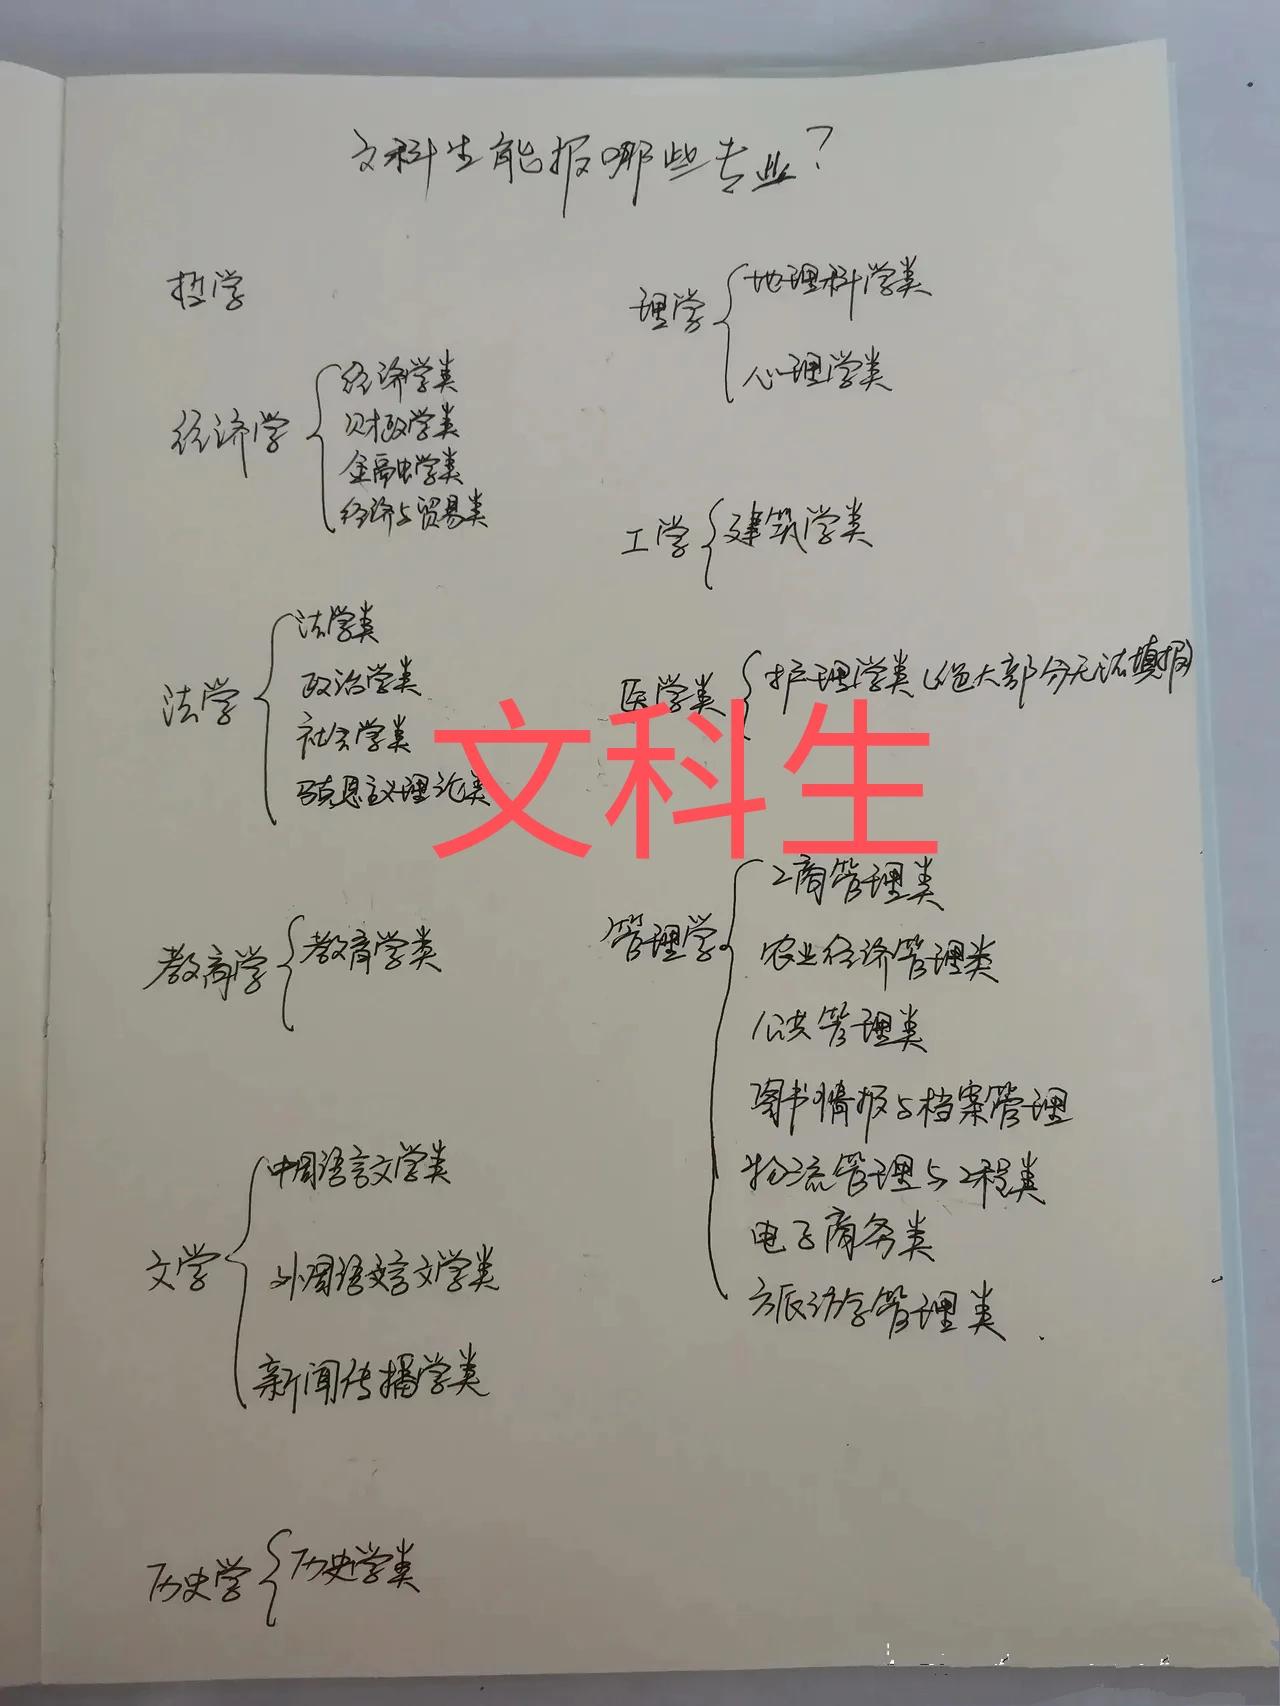 文科生能报哪些专业?
哲学
经济学
经济学类
财政学类
金融学类
经济与贸易类
法学
法学类
政治学类
社会学类
马克思主义理论类
教育学
教育学类
文学
中国语言文学类
外国语言文学类
新闻传播学类
历史学
历史学类
理学
地理科学类
心理学类
工学
建筑学类
医学类
护理学类(绝大部分无法填报)
文科生
管理学
工商管理类
农业经济管理类
公共管理类
图书情报与档案管理
物流管理与工程类
电子商务类
旅游学管理类